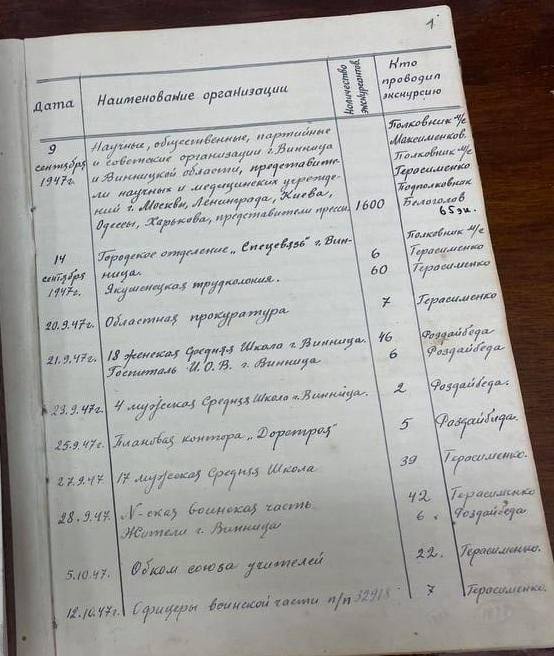 1
Дата Наименование организации Количество экскурсантов. Кто проводил экскурсию
9 сентября 1947г.
Научные, общественные, партийные
и советские организации г. Винница
и Винницкой области, представите-
ли научных и медицинских учрежде-
ний г. Москвы, Ленинграда, Киева,
Одессы, Харькова, представители прессы. 1600
Полковник м/с
Максименков.
Полковник м/с
Герасименко
Подполковник
Белоголов
65эк.
14 сентября 1947г.
Городское отделение „Спецсвязь" г. Вин-
ница. 6 Полковник м/с Герасименко
Якушенецкая трудколония. 60 Герасименко
20.9.47г. Областная прокуратура 7 Герасименко
21.9.47г. 18 женская Средняя Школа г. Винница. 46 Роздайбеда
Госпиталь И.О.В. г. Винница 6 Роздайбеда
23.9.47г. 4 мужская Средняя Школа г. Винница. 2 Роздайбеда.
25.9.47г. Плановая контора „Дорстроя" 5 Роздайбида.
27.9.47 17 мужская Средняя Школа 39 Герасименко.
28.9.47. N-ская воинская часть 42 Герасименко
Жители г. Винница 6. Роздайбеда
5.10.47. Обком союза учителей 22. Герасименко.
12.10.47г. Офицеры воинской части п/п 32918 7 Герасименко.